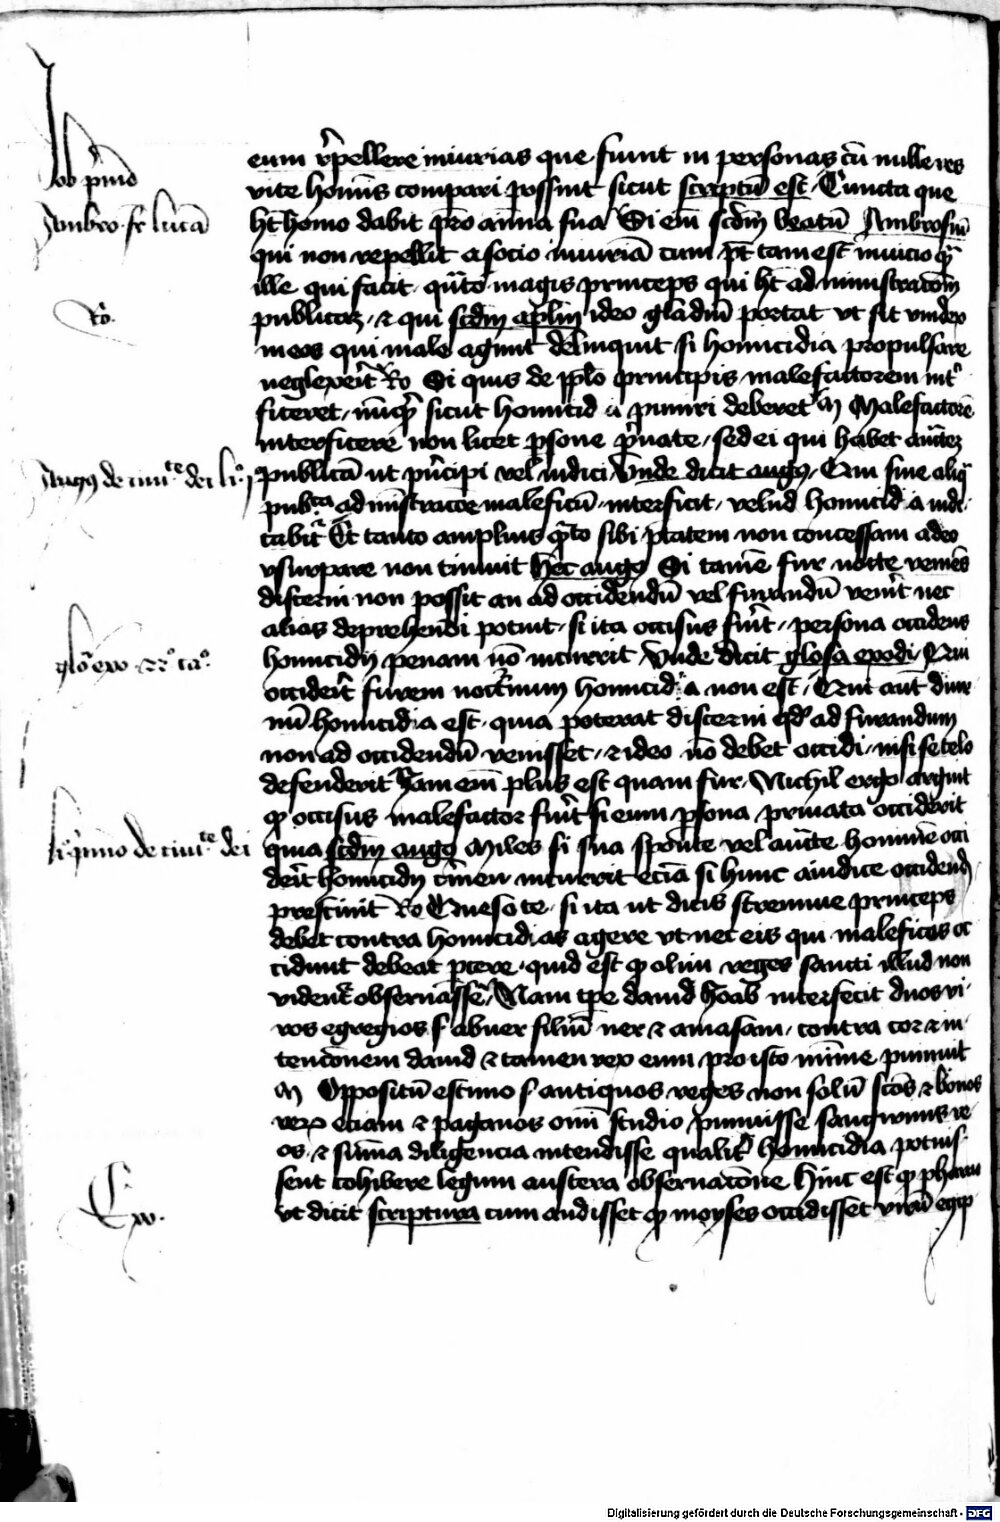 Job primo
eum repellere iniurias que fiunt in personas cū nulle res
vite hominis compari possint sicut scriptū est Cuncta que
Ambro. sr lucā
ht homo dabit pro anima sua Si em̄ scdm beatū Ambrosiū
qui non repellit a socio iniuriā cum pt tam est in vicio qm̄
ille qui facit. quāto magis princeps qui ht administracōm
Ro.
publicaz, & qui scdm aplm ideo gladiū portat vt sit vindex
in eos qui male agunt delinquit si homicidia propulsare
neglexerit Ro Si quis de pplo principis malefactorem int
ficeret, nūqd sicut homicida puniri deberet M Malefactorē
interficere non licet psone pruate, sed ei qui habet auctez
Augus de ciuite dei li. j
publicā ut principi vel iudici, Vnde dicit augo, Qui sine aliq
pubca administracōe maleficū interficit, velud homicida iudi
cabit Et tanto amplius qto sibi ptatem non concessam a deo
vsurpare non timuit hec augo Si tamē fur nocte veniēs
discerni non possit an ad occidendū vel furandū venit nec
alias deprehendi potuit, si ita occisus fuit, persona occidens
glo exo. 22o cao.
homicidij penam nō incurrit Vnde dicit glosa exodi, Qui
occiderit furem nocturnum homicida non est, Qui aut diur
nū homicida est. quia poterat discerni qd ad furandum
non ad occidendū venisset, & ideo nō debet occidi, nisi se telo
defenderit Jam em̄ plus est quam fur, Nichil ergo arguit
q occisus malefactor fuit si eum psona priuata occiderit
li. primo de ciuite dei
quia scdm augo Miles si sua sponte vel aucte hominē occi
derit homicidij crimen incurrit eciā si hunc a iudice occidend
presciuit Ro Queso te, si ita ut dicis strennue princeps
debet contra homicidias agere vt nec eis qui maleficos oc
cidunt debeat pcere. quid est q olim reges sancti illud non
vident obseruasse, Nam tpe dauid Joab interfecit duos vi
ros egregios s. abner filiū ner & amasam, contra cor & in
tencōnem dauid & tamen rex eum pro isto minime puniuit
M Oppositū estimo s. antiquos reges non solū scos & bonos
vero eciam & paganos omi studio puniuisse sanguinis re
os. & sūma diligencia intendisse qualit homicidia potuis
sent cohibere legum austera obseruacōne Hinc est q pharao
Exo.
vt dicit scriptura cum audisset q moyses occidisset virū egip
Digitalisierung gefördert durch die Deutsche Forschungsgemeinschaft - DFG